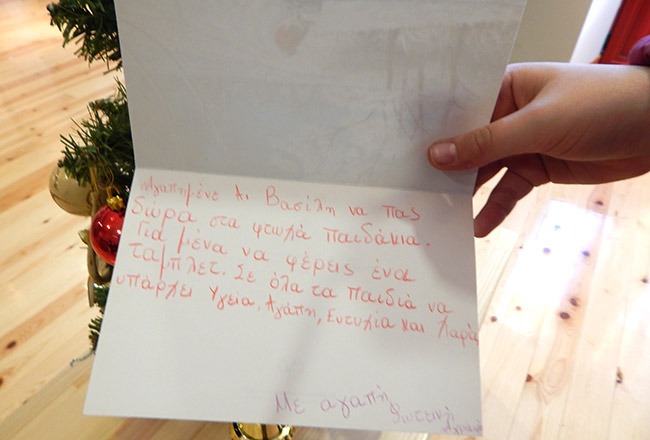 Αγαπημένε Αι Βασίλη να πας
δώρα στα φτωχά παιδάκια.
Για μένα να φέρεις ένα
ταμπλετ. Σε όλα τα παιδιά να
υπάρχει Υγεία, Αγάπη, Ευτυχία και Χαρά
Με αγαπή
Φωτεινή